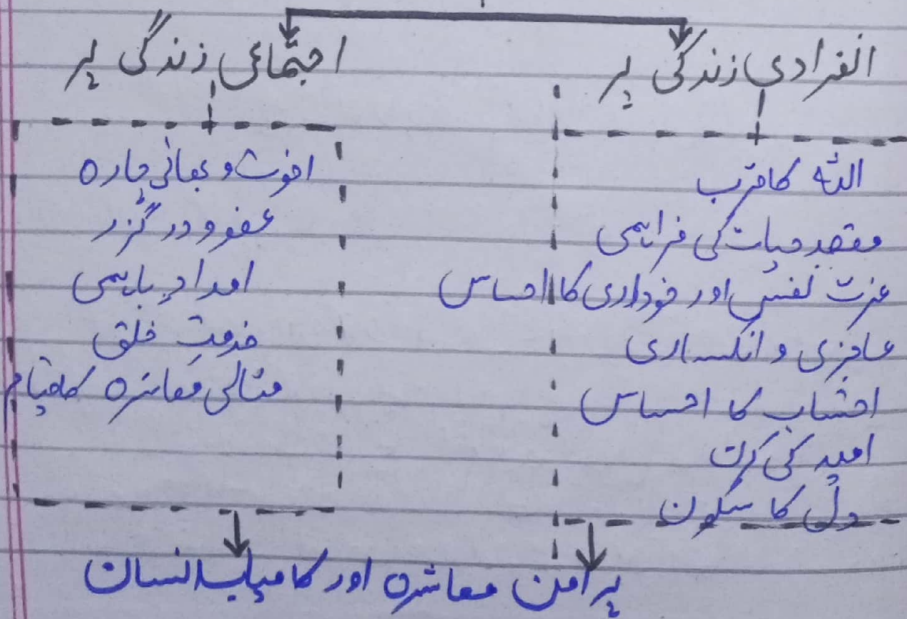 انفرادی زندگی پر
اللہ کا قرب
مقصد حیات کی فراہمی
عزت نفس اور خوداری کا احساس
عاجزی و انکساری
احتساب کا احساس
امید کی کرن
دل کا سکون
اجتماعی زندگی پر
اخوت و بھائی چارہ
عفو و درگزر
امداد باہمی
خدمت خلق
مثالی معاشرہ کا قیام
پرامن معاشرہ اور کامیاب انسان